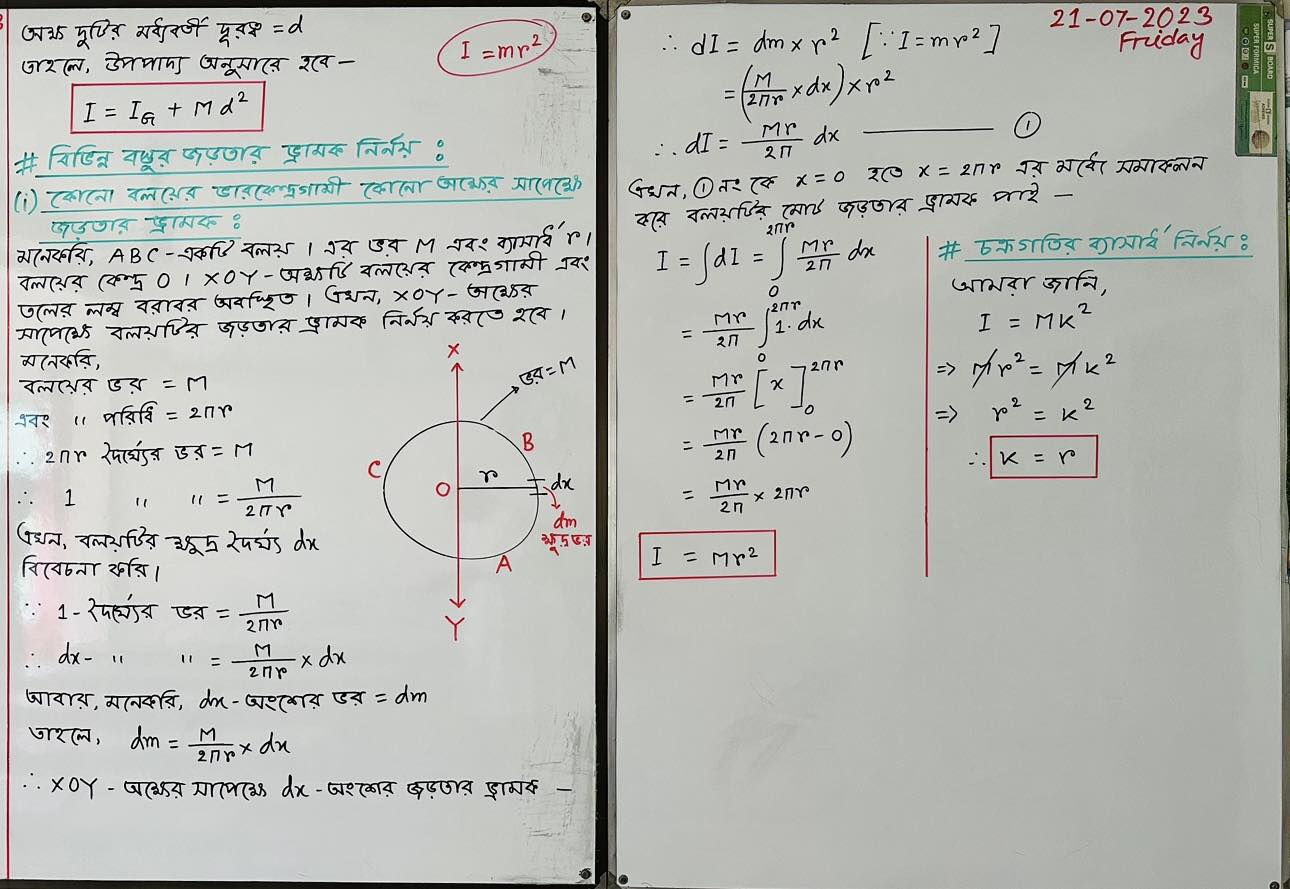 অক্ষ দুটির মধ্যবর্তী দূরত্ব = d
তাহলে, উপপাদ্য অনুসারে হবে —
I = mr²
I = I_G + Md²
# বিভিন্ন বস্তুর জড়তার ভ্রামক নির্নয় :
(i) কোনো বলয়ের ভারকেন্দ্রগামী কোনো অক্ষের সাপেক্ষে
জড়তার ভ্রামক :
মনেকরি, ABC - একটি বলয়। এর ভর M এবং ব্যাসার্ধ r।
বলয়ের কেন্দ্র O। XOY - অক্ষটি বলয়ের কেন্দ্রগামী এবং
তলের লম্ব বরাবর অবস্থিত। এখন, XOY - অক্ষের
সাপেক্ষে বলয়টির জড়তার ভ্রামক নির্নয় করতে হবে।
মনেকরি,
বলয়ের ভর = M
এবং " পরিধি = 2πr
∴ 2πr দৈর্ঘ্যের ভর = M
∴ 1 " " = M/2πr
এখন, বলয়টির ক্ষুদ্র দৈর্ঘ্য dx
বিবেচনা করি।
∵ 1 - দৈর্ঘ্যের ভর = M/2πr
∴ dx - " " = M/2πr × dx
আবার, মনেকরি, dx - অংশের ভর = dm
তাহলে, dm = M/2πr × dx
∴ XOY - অক্ষের সাপেক্ষে dx - অংশের জড়তার ভ্রামক —
X
ভর = M
B
C
r
O
dx
dm
ক্ষুদ্র ভর
A
Y
21-07-2023
Friday
∴ dI = dm × r² [∵ I = mr²]
= (M/2πr × dx) × r²
∴ dI = Mr/2π dx ——— ①
এখন, ① নং কে x = 0 হতে x = 2πr এর মধ্যে সমাকলন
করে বলয়টির মোট জড়তার ভ্রামক পাই —
I = ∫dI = ∫₀^2πr Mr/2π dx
= Mr/2π ∫₀^2πr 1. dx
= Mr/2π [x]₀^2πr
= Mr/2π (2πr - 0)
= Mr/2π × 2πr
I = Mr²
# চক্রগতির ব্যাসার্ধ নির্নয় :
আমরা জানি,
I = MK²
=> Mr² = MK²
=> r² = K²
∴ K = r
SUPER S BOARD
SUPER FORMICA